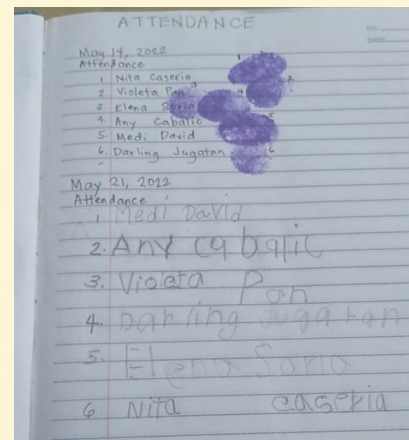 ATTENDANCE
NO.
DATE
May 14, 2022
Attendance
1
1. Nita Caseria
2
2. Violeta Pan
3
4
3. Elena Soria
5
4. Any Cabalic
5. Medi David
6
6. Darling Jugatan
May 21, 2022
Attendance
1. Medi David
2. Any cabalic
3. Violeta Pan
4. Darling Jugatan
5. Elena Soria
6. Nita caseria